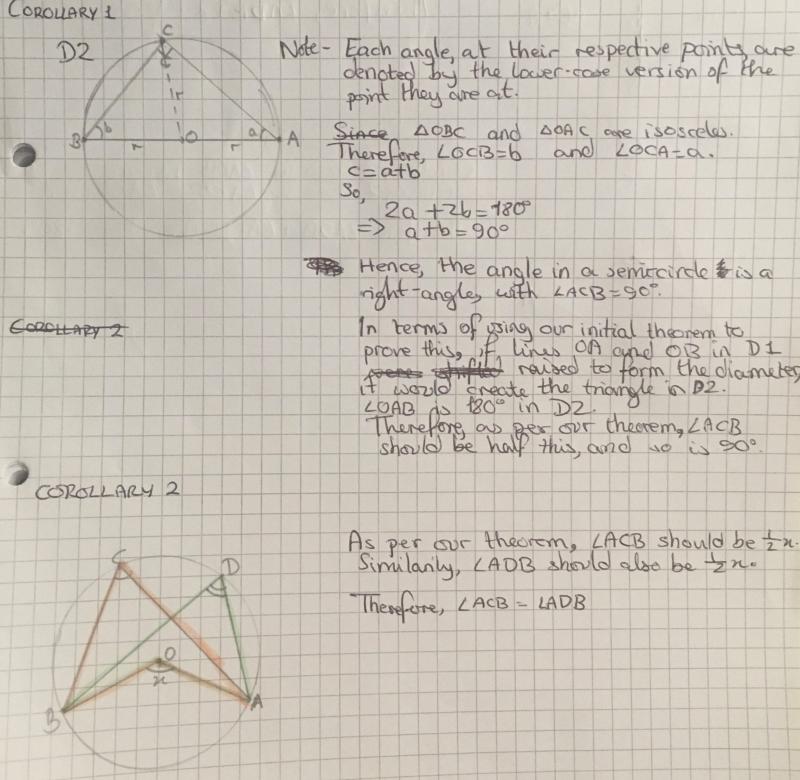 COROLLARY 1
D2
C
c
r
b
B
r
O
r
a
A
Note - Each angle, at their respective points, are
denoted by the lower-case version of the
point they are at.
Since, △OBC and △OAC are isosceles.
Therefore, ∠OCB=b and ∠OCA=a.
c=a+b
So,
2a+2b=180°
=> a+b=90°
Hence, the angle in a semicircle is a
right-angle, with ∠ACB=90°.
COROLLARY 2
In terms of using our initial theorem to
prove this, if lines OA and OB in D1
raised to form the diameter,
it would create the triangle in D2.
∠OAB is 180° in D2.
Therefore, as per our theorem, ∠ACB
should be half this, and so is 90°.
COROLLARY 2
C
D
O
x
B
A
As per our theorem, ∠ACB should be ½x.
Similarily, ∠ADB should also be ½x.
Therefore, ∠ACB = ∠ADB